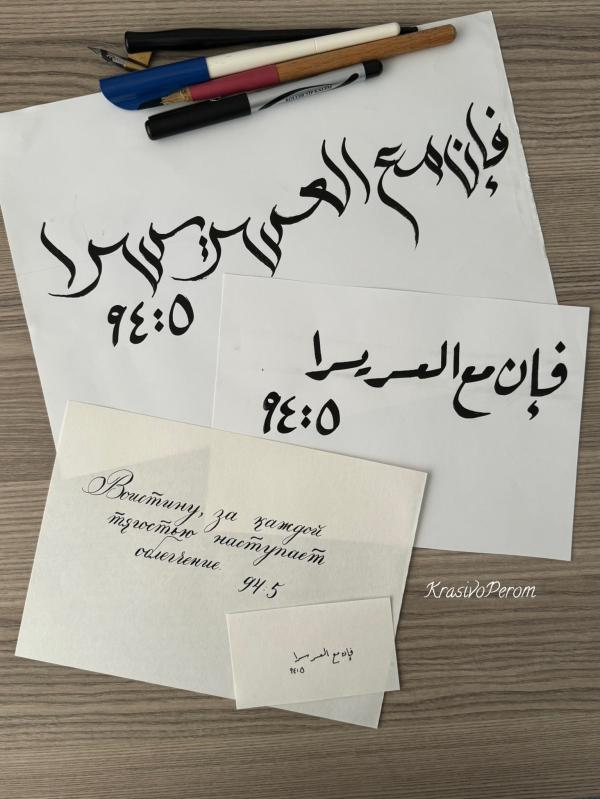 فإن مع العسر يسرا
٩٤:٥
فإن مع العسر يسرا
٩٤:٥
Воистину, за каждой
тягостью наступает
облегчение.
94:5
KrasivoPerom
فإن مع العسر يسرا
٩٤:٥